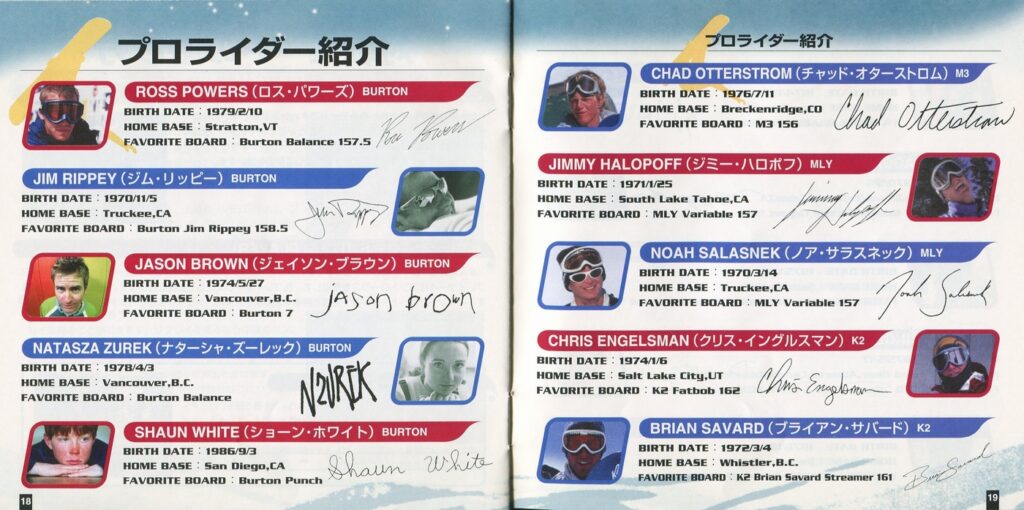 プロライダー紹介
ROSS POWERS（ロス・パワーズ） BURTON
BIRTH DATE：1979/2/10
HOME BASE：Stratton,VT
FAVORITE BOARD：Burton Balance 157.5
Ross Powers
JIM RIPPEY（ジム・リッピー） BURTON
BIRTH DATE：1970/11/5
HOME BASE：Truckee,CA
FAVORITE BOARD：Burton Jim Rippey 158.5
Jim Rippey
JASON BROWN（ジェイソン・ブラウン） BURTON
BIRTH DATE：1974/5/27
HOME BASE：Vancouver,B.C.
FAVORITE BOARD：Burton 7
Jason brown
NATASZA ZUREK（ナターシャ・ズーレック） BURTON
BIRTH DATE：1978/4/3
HOME BASE：Vancouver,B.C.
FAVORITE BOARD：Burton Balance
NZUREK
SHAUN WHITE（ショーン・ホワイト） BURTON
BIRTH DATE：1986/9/3
HOME BASE：San Diego,CA
FAVORITE BOARD：Burton Punch
Shaun White
18
プロライダー紹介
CHAD OTTERSTROM（チャッド・オターストロム） M3
BIRTH DATE：1976/7/11
HOME BASE：Breckenridge,CO
FAVORITE BOARD：M3 156
Chad Otterstrom
JIMMY HALOPOFF（ジミー・ハロポフ） MLY
BIRTH DATE：1971/1/25
HOME BASE：South Lake Tahoe,CA
FAVORITE BOARD：MLY Variable 157
Jimmy Halopoff
NOAH SALASNEK（ノア・サラスネック） MLY
BIRTH DATE：1970/3/14
HOME BASE：Truckee,CA
FAVORITE BOARD：MLY Variable 157
Noah Salasnek
CHRIS ENGELSMAN（クリス・イングルスマン） K2
BIRTH DATE：1974/1/6
HOME BASE：Salt Lake City,UT
FAVORITE BOARD：K2 Fatbob 162
Chris Engelsman
BRIAN SAVARD（ブライアン・サバード） K2
BIRTH DATE：1972/3/4
HOME BASE：Whistler,B.C.
FAVORITE BOARD：K2 Brian Savard Streamer 161
Brian Savard
19